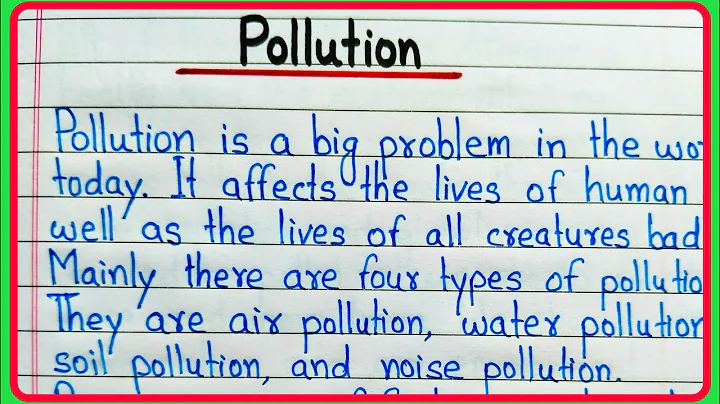 Pollution
Pollution is a big problem in the wo
today. It affects the lives of human
well as the lives of all creatures bad
Mainly there are four types of pollutio
They are air pollution, water pollution
soil pollution, and noise pollution.